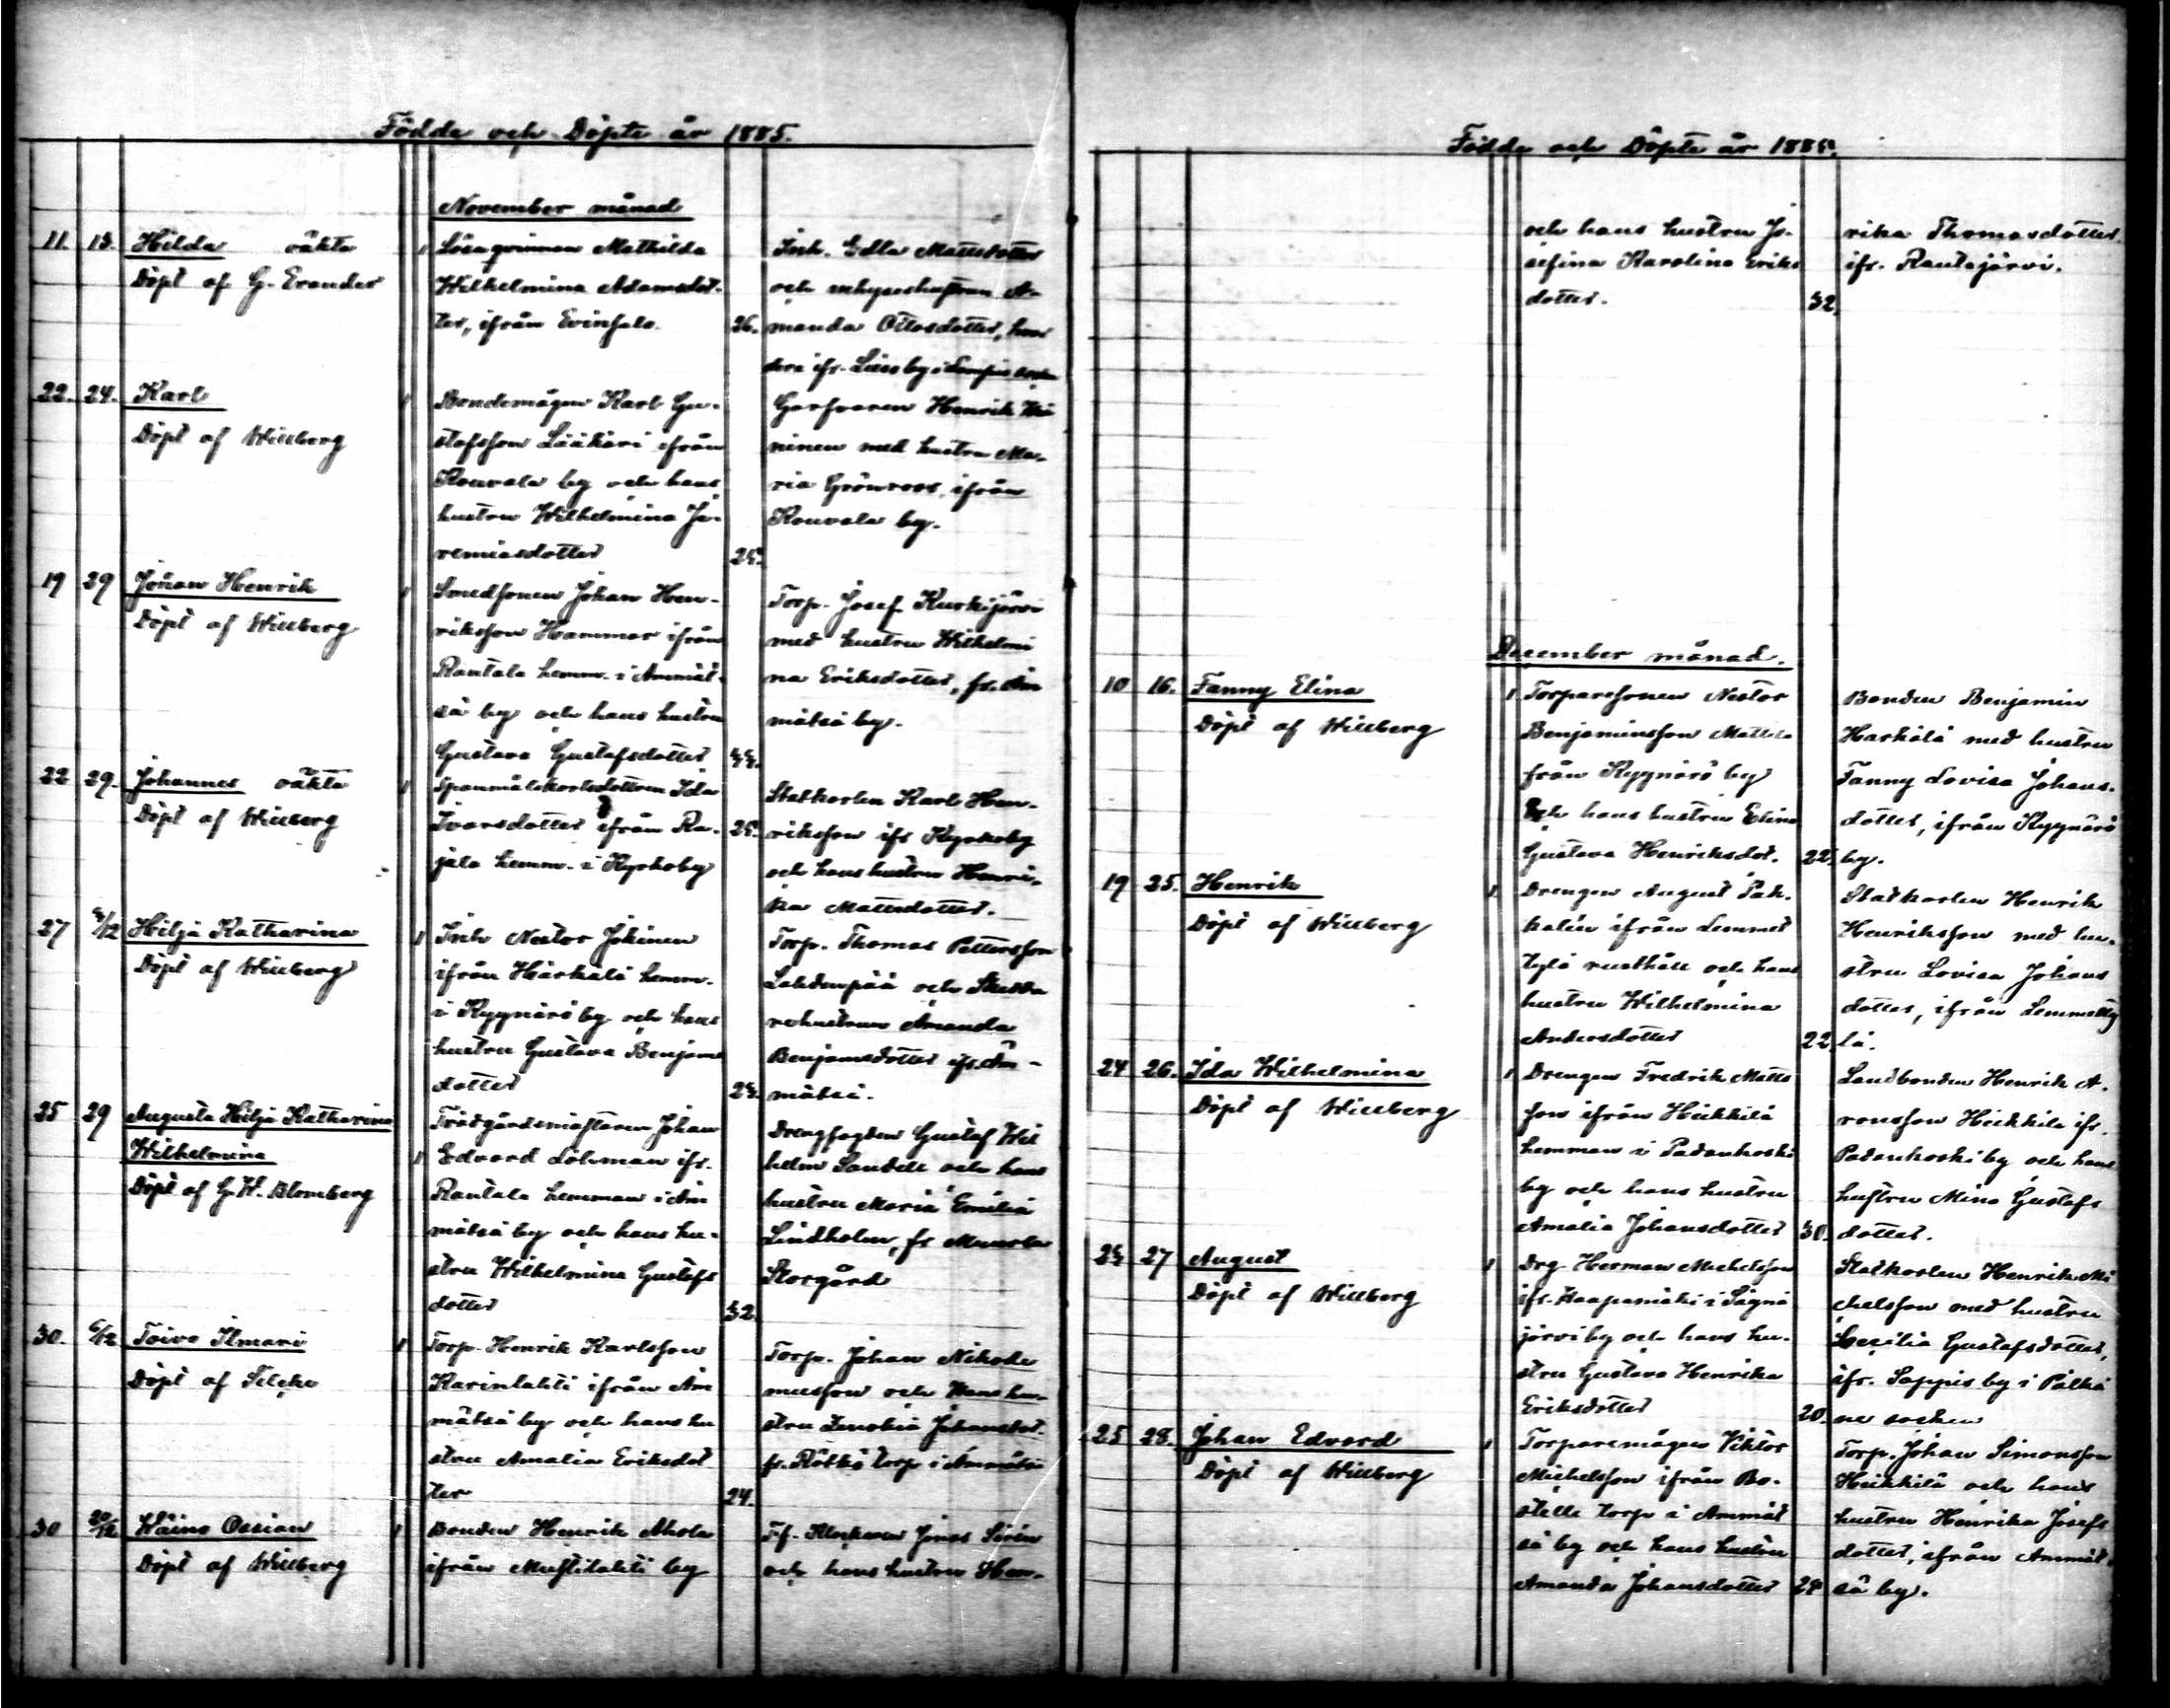 Födde och Döpte år 1885.
November månad
11. 15. Hilda oäkta
Döpt af G. Erander
Lösaqvinnan Mathilda
Wilhelmina Adamsdot-
ter, ifrån Evinsalo. 26.
Inh. Edla Mattsdotter
och inhyseshustrun A-
manda Ottosdotter,
22. 24. Karl
Döpt af Willberg
Bondemågen Karl Gu-
stafsson Liikari ifrån
Rouvala by och hans
hustru Wilhelmina Je-
remiasdotter 25.
Garfvaren Henrik
ninen med hustru Ma-
ria Grönroos, ifrån
Rouvala by.
19 29 Johan Henrik
Döpt af Willberg
Smedsonen Johan Hen-
riksson Hammar ifrån
Rantala hemm. i Ammät-
sä by och hans hustru
Gustava Gustafsdotter
Torp. Josef Kurkijärvi
med hustru Wilhelmi
na Eriksdotter, fr. Äm
mätsä by.
22 29. Johannes oäkta
Döpt af Willberg
Spanmålskarlsdottren Ida
Ivarsdotter ifrån Ra- 25.
jala hemm. i Kyrkoby
Statkarlen Karl Hen-
riksson ifr Kyrkoby
och hans hustru Henri-
ka Mattsdotter.
27 6/12 Hilja Katharina
Döpt af Willberg
Inh Nestor Jokinen
ifrån Härkälä hemm.
i Kyynärö by och hans
hustru Gustava Benjams
dotter
Torp. Thomas Pettersson
Lahdenpää och
rehustrun Amanda
Benjamsdotter ifr. Äm-
mätsä.
25 29 Augusta Hilja Katharina
Wilhelmina
Döpt af G. W. Blomberg
Trädgårdsmästaren Johan
Edvard Löhman ifr.
Rantala hemman i Äm
mätsä by och hans hu-
stru Wilhelmina Gustafs
dotter 32.
Drengfogden Gustaf Wil
helm Sandell och hans
hustru Maria Emilia
Lindholm, fr
Storgård
30. 6/12 Toivo Ilmari
Döpt af
Torp. Henrik Karlsson
Karinlahti ifrån Äm
mätsä by och hans hu
stru Amalia Eriksdot
ter 24.
Torp. Johan Nikode
musson och hans hu-
stru Zenobia Johansdot.
fr. Rötkö torp i Ämmätsä
30 20/12 Wäinö Ossian
Döpt af Willberg
Bonden Henrik Ahola
ifrån Mustilahti by
Tf. Klockaren Jonas Sirén
och hans hustru Hen-
Födde och Döpte år 1885.
och hans hustru Jo-
sefina Karolina Eriks
dotter. 32.
rika Thomasdotter.
ifr. Rautajärvi.
December månad.
10 16. Fanny Elina
Döpt af Willberg
Torparesonen Nestor
Benjaminsson Mattila
från Kyynärö by
Och hans hustru Elina
Gustava Henriksdot. 22.
Bonden Benjamin
Härkälä med hustru
Fanny Lovisa Johans-
dotter, ifrån Kyynärö
by.
19 25. Henrik
Döpt af Willberg
Drengen August Pak-
kalin ifrån Lemmet
tylä rusthåll och hans
hustru Wilhelmina
Andersdotter 22.
Statkarlen Henrik
Henriksson med hu-
stru Lovisa Johans
dotter, ifrån Lemmetty
lä.
24 26. Ida Wilhelmina
Döpt af Willberg
Drengen Fredrik Matts
son ifrån Heikkilä
hemman i Padankoski
by och hans hustru
Amalia Johansdotter 30.
Landbonden Henrik A-
ronsson Heikkilä ifr.
Padankoski by och hans
hustru Mina Gustafs
dotter.
27 August
Döpt af Willberg
Drg. Herman Michelsson
ifr. Haapamäki i Sägnä
järvi by och hans hu-
stru Gustava Henrika
Eriksdotter 20.
Statkarlen Henrik Mi
chelsson med hustru
Cecilia Gustafsdotter,
ifr. Sappis by i Pälkä
ne socken
25 28. Johan Edvard
Döpt af Willberg
Torparemågen Viktor
Michelsson ifrån Bo-
ställe torp i Ammät
sä by och hans hustru
Amanda Johansdotter
Torp. Johan Simonsson
Heikkilä och hans
hustru Henrika Josefs
dotter, ifrån Ammät
sä by.